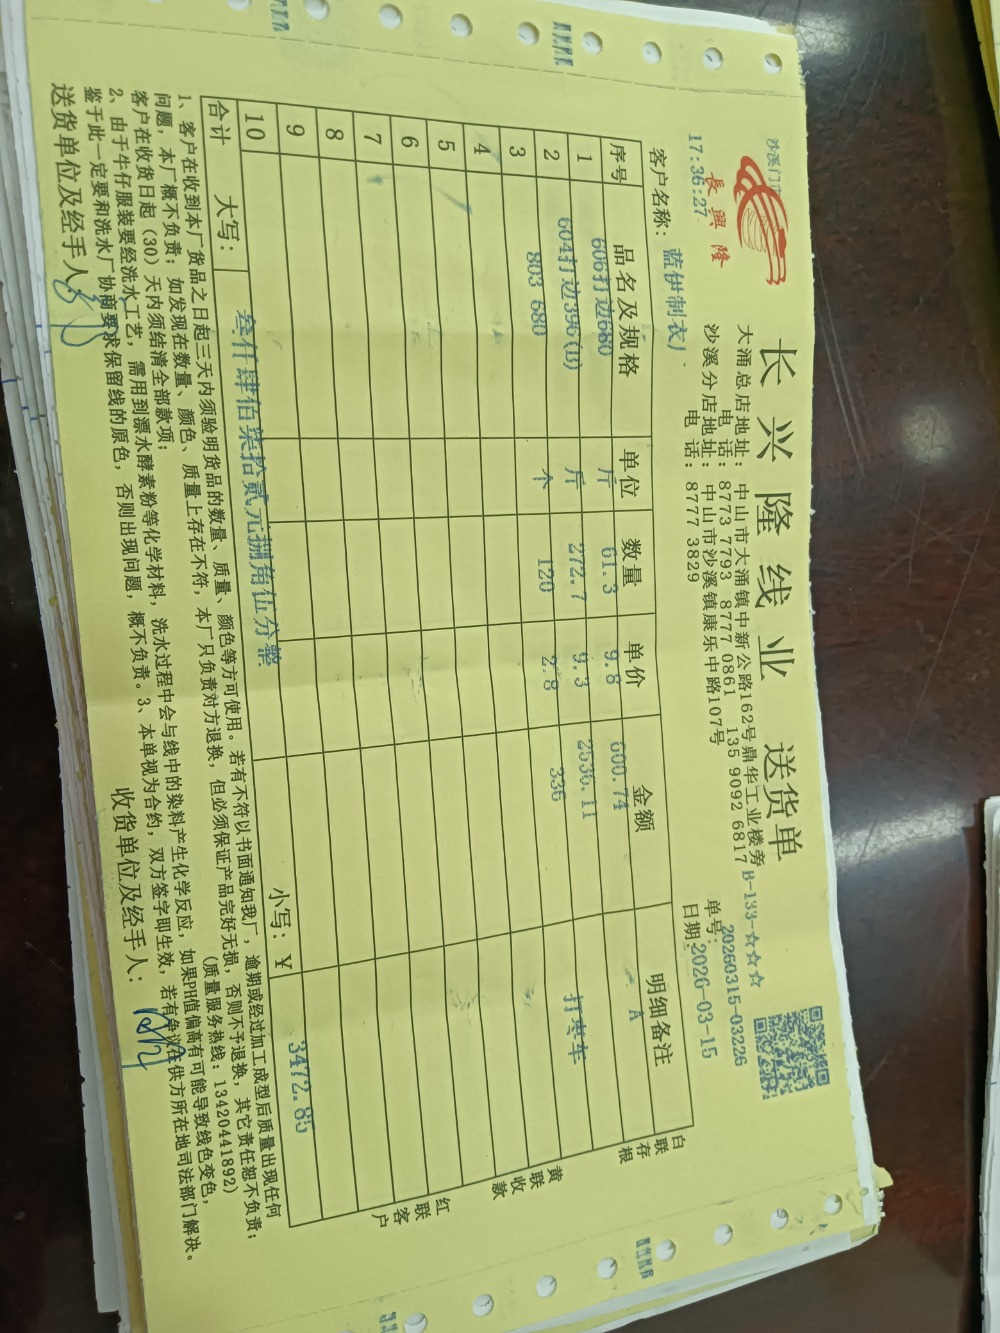 沙溪门市
17:36:27
長興隆
长兴隆线业 送货单
大涌总店地址：中山市大涌镇中新公路162号鼎华工业楼旁
电 话：8773 7793 8777 0861 135 9092 6817
沙溪分店地址：中山市沙溪镇康乐中路107号
电 话：8777 3829
B-133-☆☆☆
单号：20260315-03226
日期：2026-03-15
客户名称：蓝伊制衣厂
序号 品名及规格 单位 数量 单价 金额 明细备注
1 606打边680 斤 61.3 9.8 600.74 A
2 604打边396(B) 斤 272.7 9.3 2536.11 打枣车
3 803 680 个 120 2.8 336
4
5
6
7
8
9
10
合计 大写：叁仟肆佰柒拾贰元捌角伍分整 小写：￥ 3472.85
1、客户在收到本厂货品之日起三天内须验明货品的数量、质量、颜色等方可使用。若有不符以书面通知我厂，逾期或经过加工成型后质量出现任何
问题，本厂概不负责；如发现在数量、颜色、质量上存在不符，本厂只负责对方退换，但必须保证产品完好无损，否则不予退换，其它责任恕不负责；
客户在收货日起（30）天内须结清全部款项；（质量服务热线：13420441892）
2、由于牛仔服装要经洗水工艺，需用到漂水酵素粉等化学材料，洗水过程中会与线中的染料产生化学反应，如果PH值偏高有可能导致线色变色，
鉴于此一定要和洗水厂协商要求保留线的原色，否则出现问题，概不负责。3、本单视为合约，双方签字即生效，若有争议在供方所在地司法部门解决。
送货单位及经手人：
收货单位及经手人：
白联存根
黄联收款
红联客户